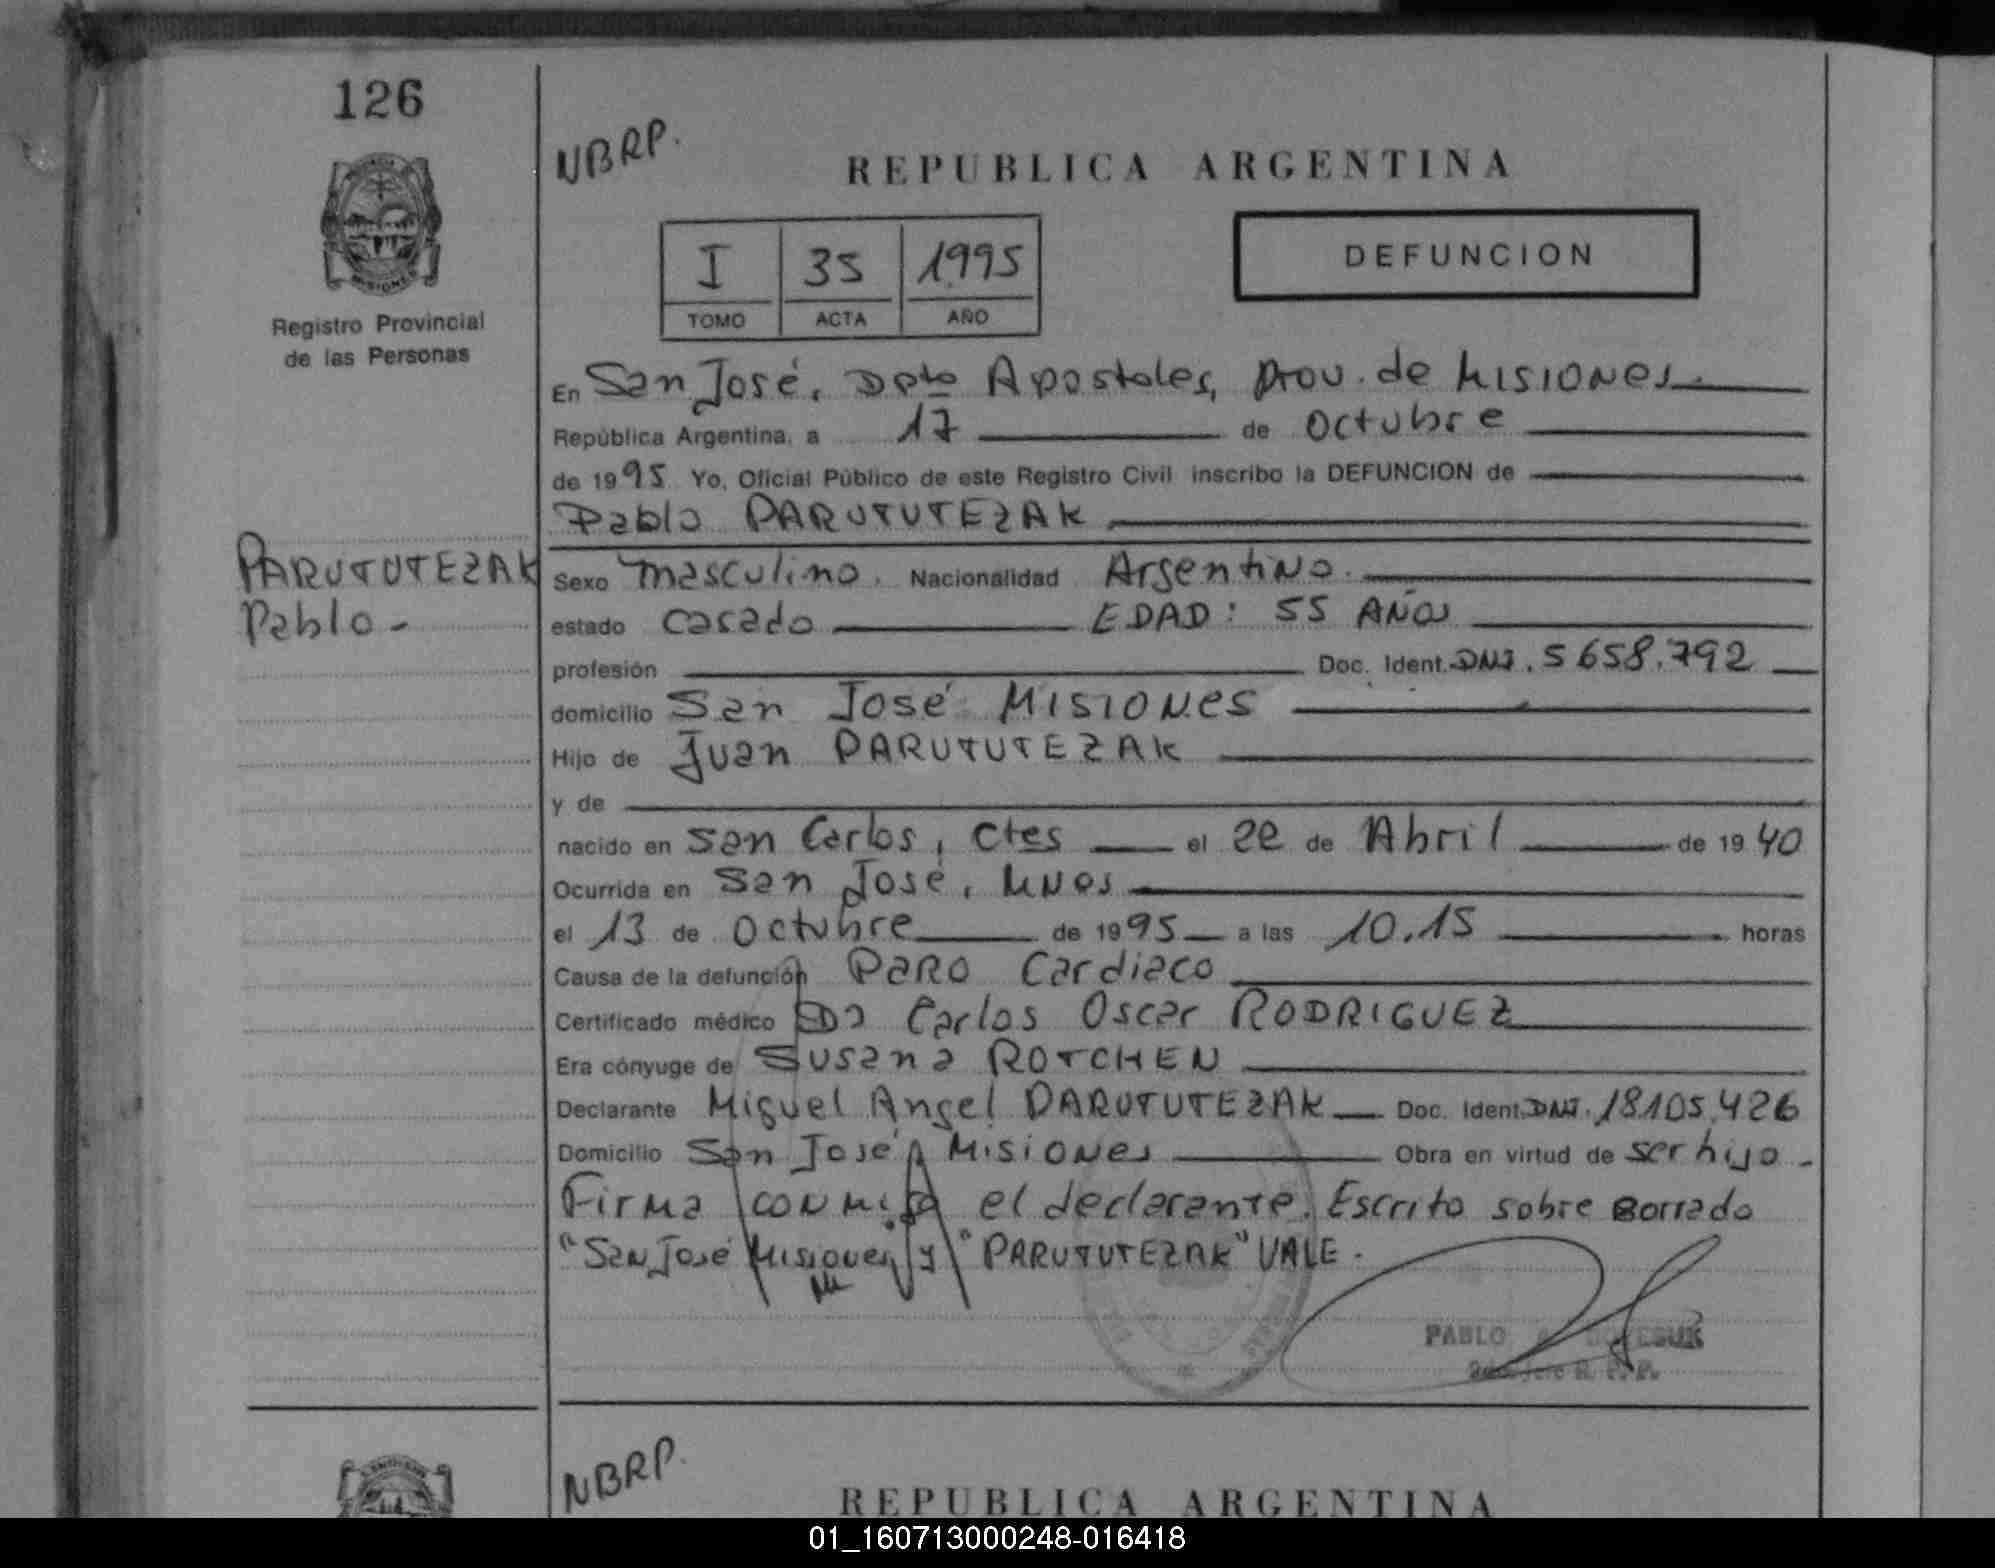 126
NBRP.
REPUBLICA ARGENTINA
I 35 1995
TOMO ACTA AÑO
DEFUNCION
Registro Provincial
de las Personas
En San José, Dpto Apostoles, Prov. de Misiones
República Argentina, a 17 de Octubre
de 1995 Yo, Oficial Público de este Registro Civil inscribo la DEFUNCION de
Pablo PARUTUTEZAK
PARUTUTEZAK
Pablo-
Sexo masculino. Nacionalidad Argentino.
estado casado EDAD: 55 AÑOs
profesión Doc. Ident. DNI. 5658.792
domicilio San José Misiones
Hijo de Juan PARUTUTEZAK
y de
nacido en San Carlos, Ctes el 22 de Abril de 1940
Ocurrida en San José, Mnes
el 13 de Octubre de 1995 a las 10.15 horas
Causa de la defunción Paro Cardiaco
Certificado médico Dr Carlos Oscar RODRIGUEZ
Era cónyuge de Susana ROTCHEN
Declarante Miguel Angel PARUTUTEZAK Doc. Ident. DNI. 18105.426
Domicilio San José Misiones Obra en virtud de ser hijo-
Firma conmigo el declarante. Escrito sobre Borrado
"San José Misiones y "PARUTUTEZAK" VALE.
PABLO
R. P. P.
NBRP.
REPUBLICA ARGENTINA
01_160713000248-016418